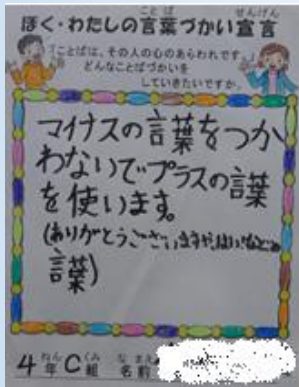 ことば せんげん
ぼく・わたしの言葉づかい宣言
ことばは、その人の心のあらわれです。
どんなことばづかいを
していきたいですか。
マイナスの言葉をつか
わないでプラスの言葉
を使います。
(ありがとうございますや、はい、などの
言葉)
ねん くみ な まえ
4年C組 名前